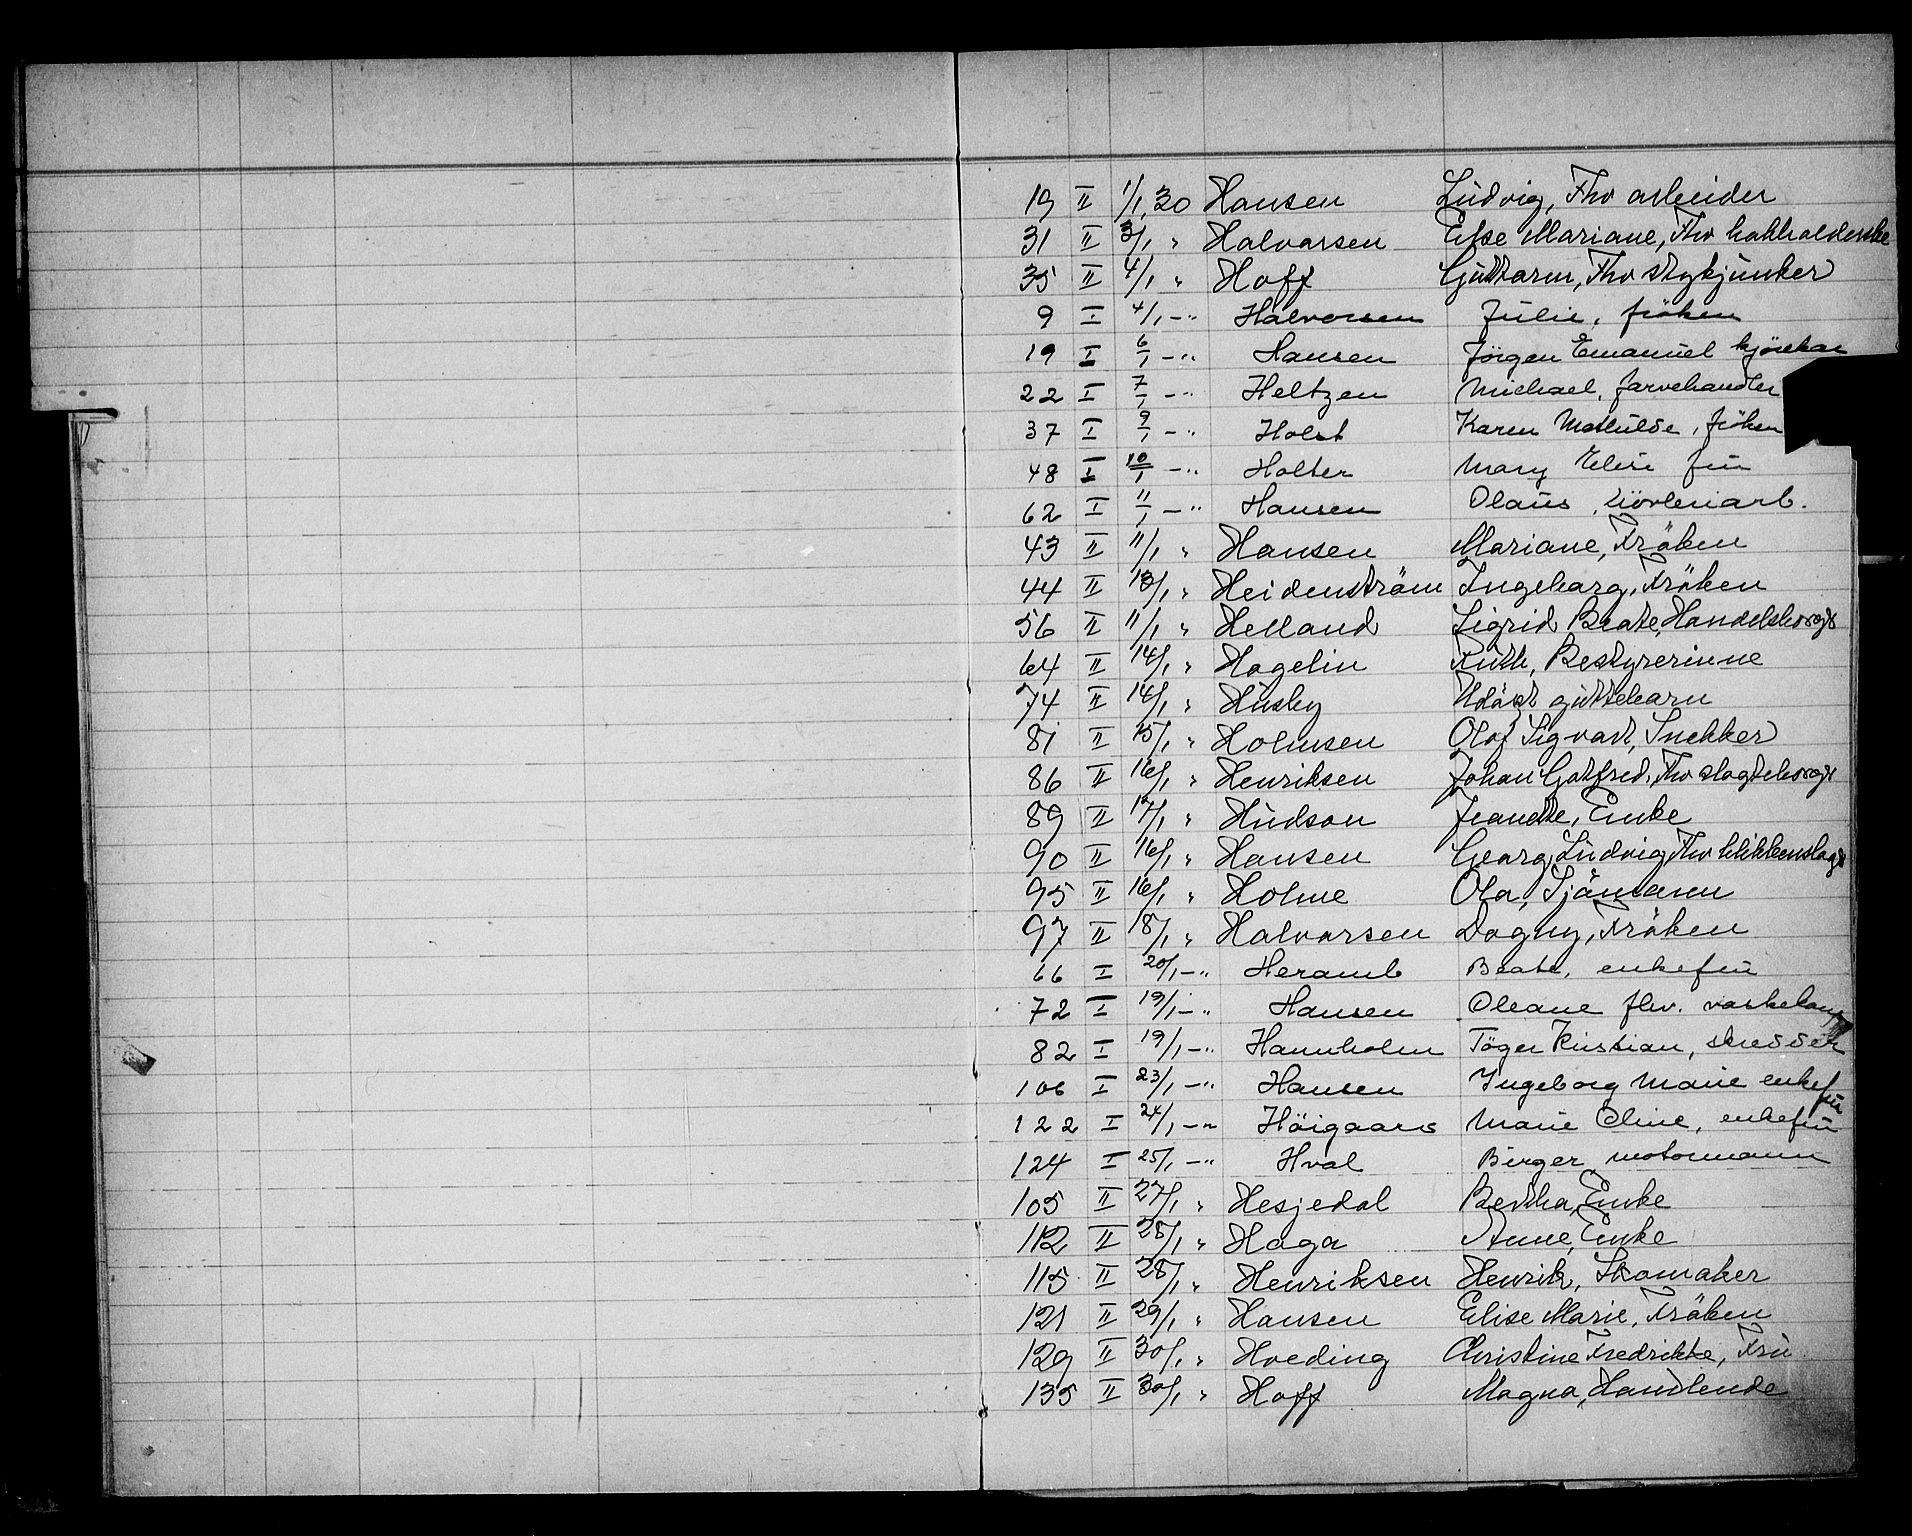 19 II 1/1, 30 Hansen Ludvig, Fhv arbeider
31 II 3/1 " Halvorsen Else Mariane, Fhv
35 II 4/1 " Hoff Guttorm, Fhv stykjunker
9 I 4/1 -" Halvorsen Julie, frøken
19 I 6/1 -" Hansen Jørgen Emanuel
22 I 7/1 -" Heltzen Michael, farvehandler
37 I 9/1 -" Holst Karen Mathilde, frøken
48 I 10/1 -" Holter Mary Elise fru
62 I 11/1 -" Hansen Olaus,
43 II 11/1 " Hansen Mariane, Frøken
44 II 13/1 " Heidenstrøm Ingeborg, Frøken
56 II 11/1 " Helland Sigrid Beate, Handelsborgt
64 II 14/1 " Hagelin Ruth, Bestyrerinne
74 II 14/1 " Husby Udøpt guttebarn
81 II 15/1 " Holmsen Olaf Sigvart, Snekker
86 II 16/1 " Henriksen Johan Gotfred, Fhv slagteborgt
89 II 17/1 " Hudson Jeanette, Enke
90 II 16/1 " Hansen Georg Ludvig, Fhv blikkenslagr
95 II 16/1 " Holme Ola, Sjømann
97 II 18/1 " Halvorsen Dagny, Frøken
66 I 20/1 -" Heramb Beate, enkefru
72 I 19/1 -" Hansen Oleane fhv.
82 I 19/1 -" Hannholm Tøger Kristian, skredder
106 I 23/1 -" Hansen Ingeborg Marie enkefru
122 I 24/1 -" Høigaard Marie Oline, enkefru
124 I 25/1 -" Hval Birger, motormann
105 II 27/1 " Hesjedal Bertha, Enke
112 II 28/1 " Haga Anne, Enke
115 II 28/1 " Henriksen Henrik, Skomaker
121 II 29/1 " Hansen Elise Marie, Frøken
129 II 30/1 " Hveding Christine Fredrikke, Fru
135 II 30/1 " Hoff Magna, Handlende